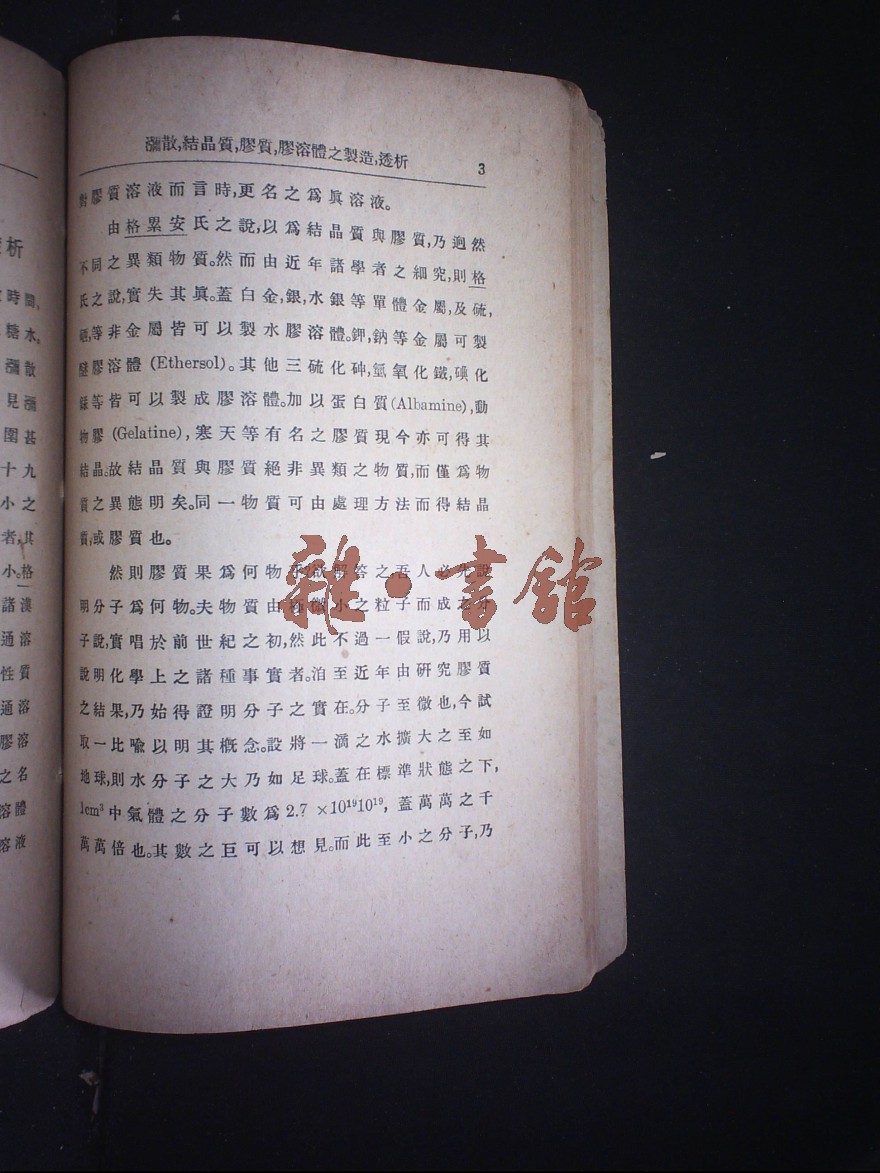 瀰散,結晶質,膠質,膠溶體之製造,透析 3
對膠質溶液而言時,更名之爲眞溶液。
由格累安氏之說,以爲結晶質與膠質,乃迥然
不同之異類物質。然而由近年諸學者之細究,則格
氏之說,實失其眞。蓋白金,銀,水銀等單體金屬,及硫,
硒,等非金屬皆可以製水膠溶體。鉀,鈉等金屬可製
醚膠溶體 (Ethersol)。其他三硫化砷,氫氧化鐵,碘化
等皆可以製成膠溶體。加以蛋白質(Albamine),動
物膠 (Gelatine),寒天等有名之膠質現今亦可得其
結晶。故結晶質與膠質絕非異類之物質,而僅爲物
質之異態明矣。同一物質可由處理方法而得結晶
質,或膠質也。
然則膠質果爲何物乎?欲解答之,吾人必先說
明分子爲何物。夫物質由極微小之粒子而成之分
子說,實唱於前世紀之初,然此不過一假說,乃用以
說明化學上之諸種事實者。洎至近年由硏究膠質
之結果,乃始得證明分子之實在。分子至微也,今試
取一比喩以明其槪念。設將一滴之水擴大之至如
地球,則水分子之大乃如足球。蓋在標準狀態之下,
1cm³中氣體之分子數爲 2.7 ×10¹⁹10¹⁹, 蓋萬萬之千
萬萬倍也。其數之巨可以想見。而此至小之分子,乃
析
時間,
糖水。
瀰散
見瀰
圍甚
十九
小之
者,其
小。格
諸漠
通溶
性質
通溶
膠溶
之名
溶體
溶液
雜·書館